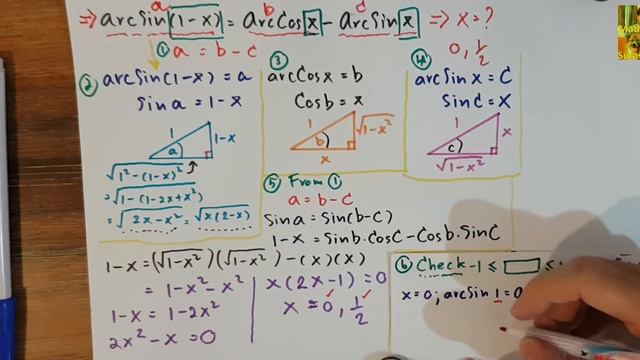 ⇒ arcSin(1-x) = arcCos x - arcSin x ⇒ x = ?
a b c
① a = b - c
0, 1/2
② arcSin(1-x) = a
sin a = 1 - x
1
1-x
a
√(1² - (1-x)²)
= √(1 - (1 - 2x + x²))
= √(2x - x²) = √(x(2-x))
③
arcCosx = b
Cosb = x
1
√(1-x²)
b
x
④
arcSin x = C
SinC = X
1
x
c
√(1-x²)
⑤ From ①
a = b - c
Sina = Sin(b-c)
1-X = Sinb.CosC - Cosb.SinC
1-x = (√(1-x²))(√(1-x²)) - (x)(x)
= 1 - x² - x²
1-x = 1 - 2x²
2x² - x = 0
x(2x-1) = 0
x = 0, 1/2
⑥ Check -1 ≤ ≤
x = 0; arcSin 1 = 0